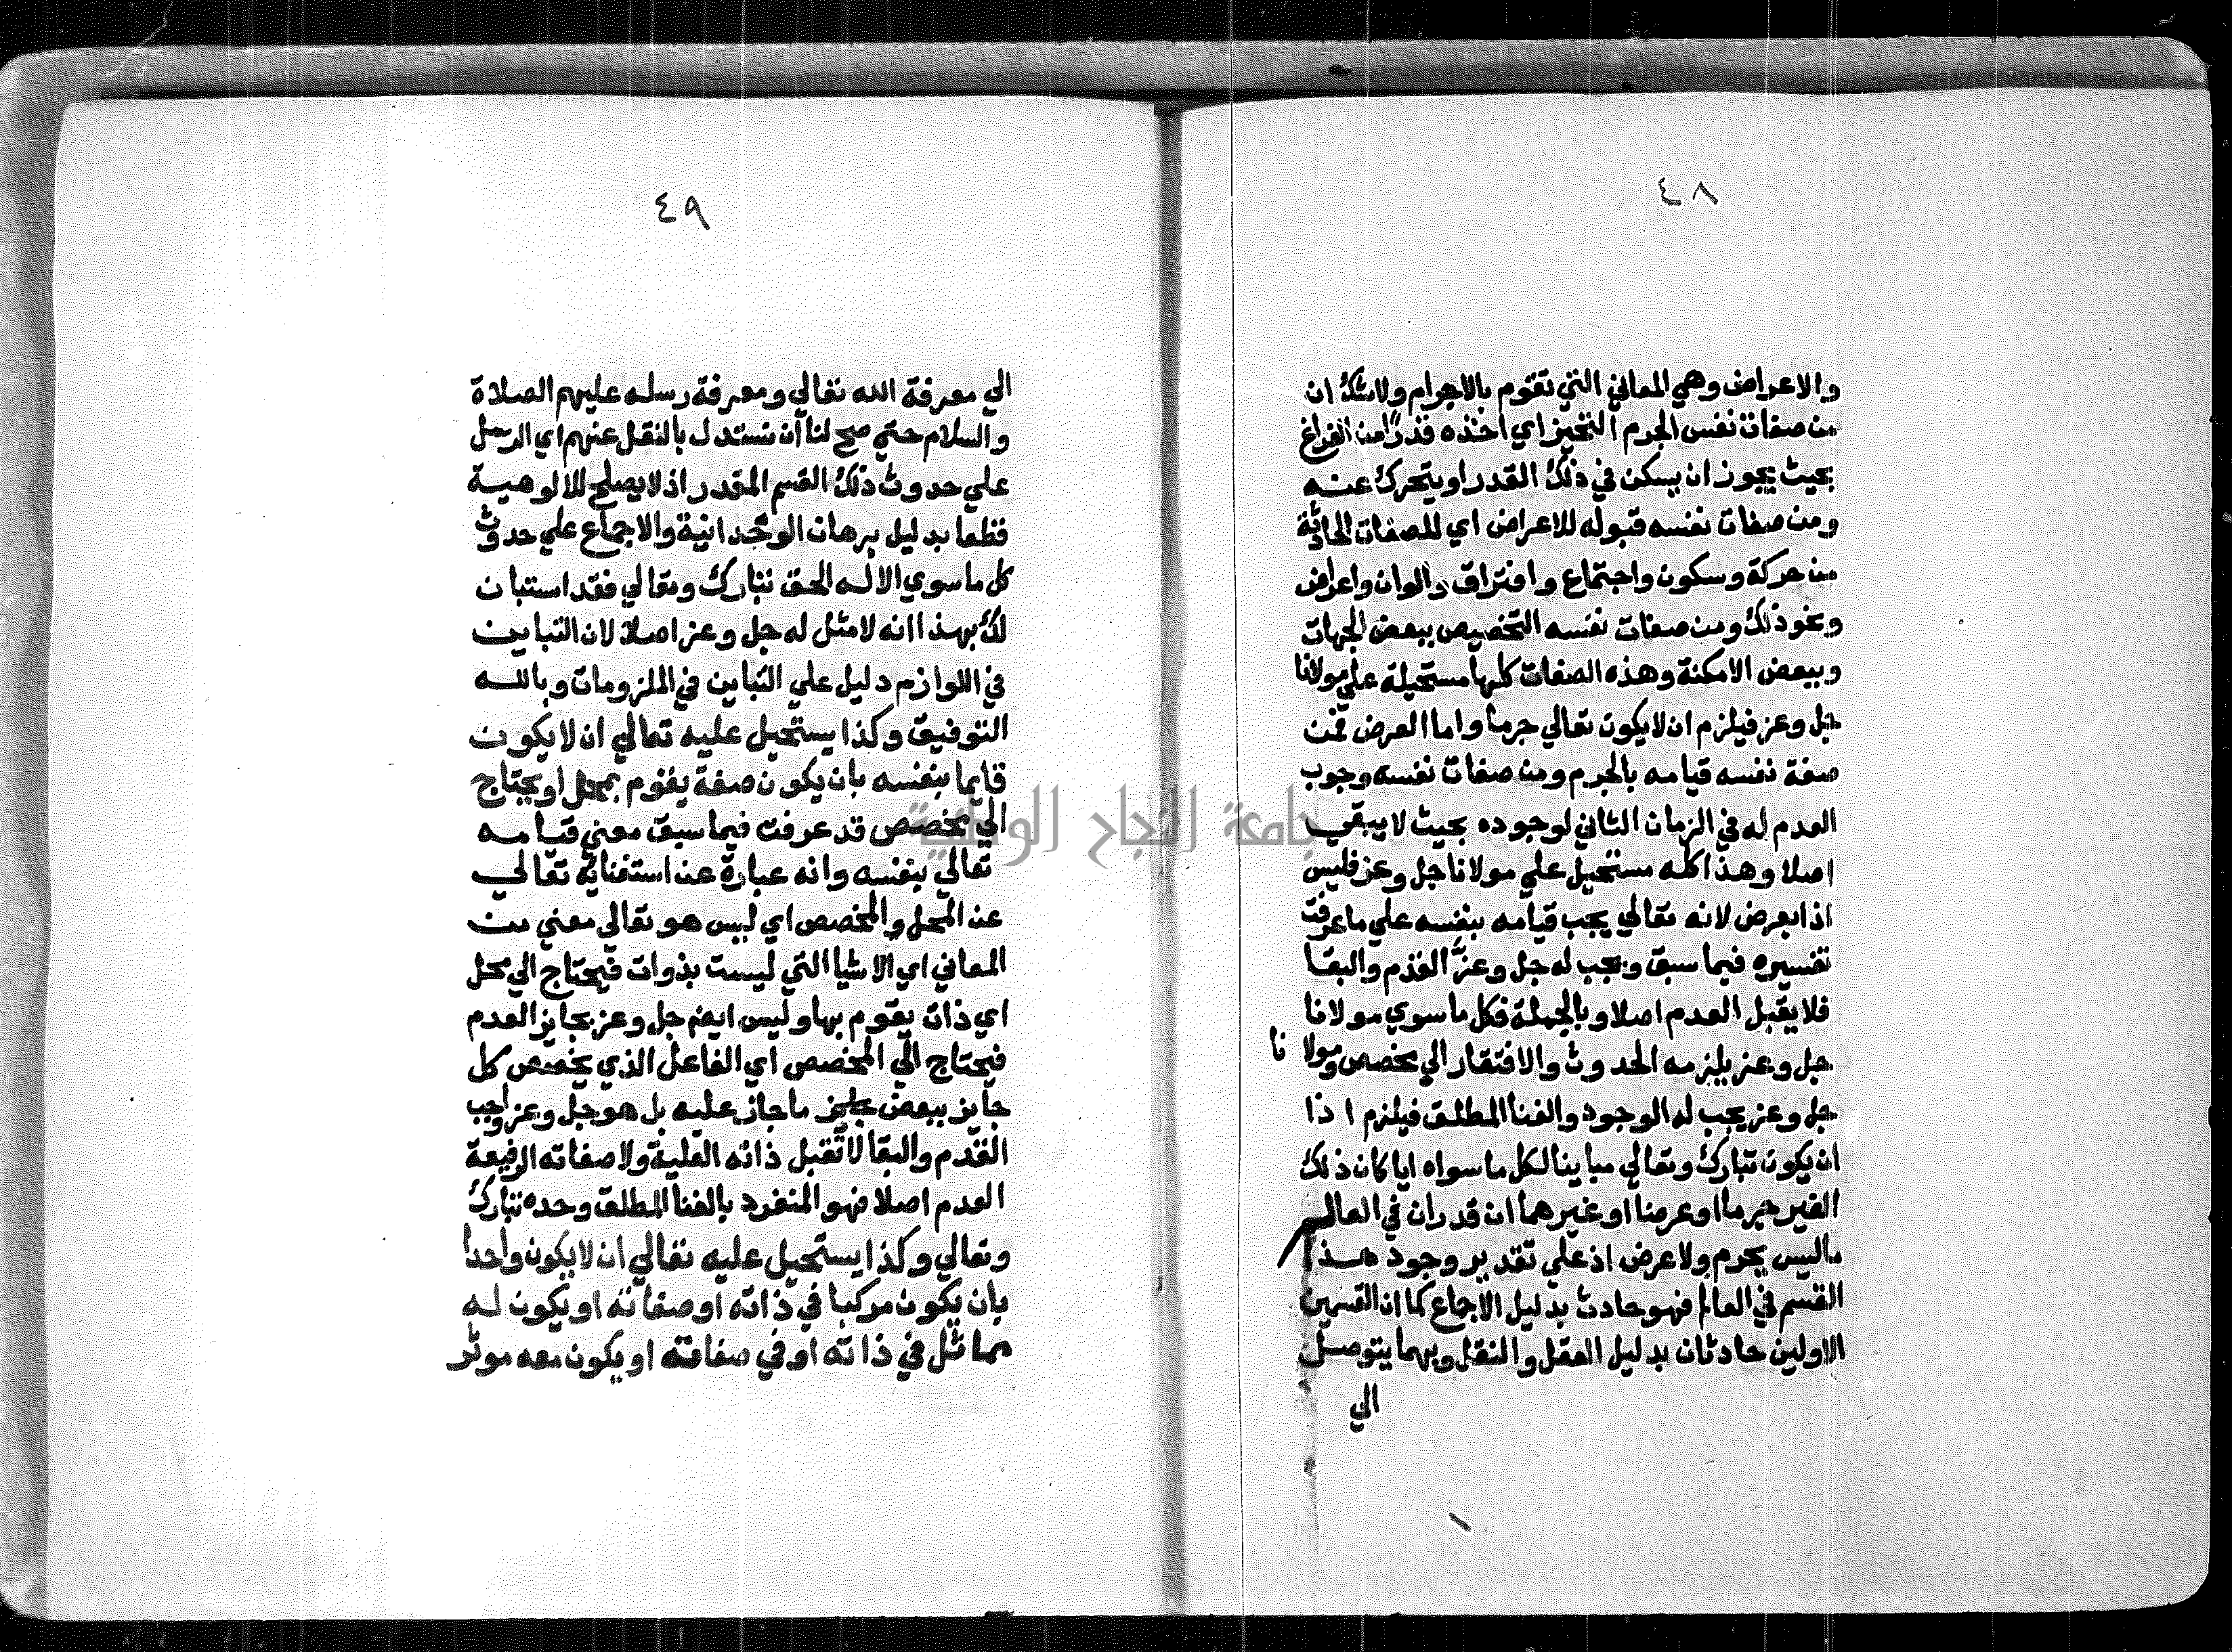 ٤٨
والاعراض وهي المعاني التي تقوم بالاجرام ولا شك ان
من صفات نفس الجرم التحيز اي اخذه قدرا من الفراغ
بحيث يجوز ان يسكن في ذلك القدر او يتحرك عنه
ومن صفات نفسه قبوله للاعراض اي للصفات الحادثة
من حركة وسكون واجتماع وافتراق والوان واعراض
ونحو ذلك ومن صفات نفسه التخصيص ببعض الجهات
وببعض الامكنة وهذه الصفات كلها مستحيلة علي مولانا
جل وعز فيلزم ان لا يكون تعالي جرما واما العرض فمن
صفة نفسه قيامه بالجرم ومن صفات نفسه وجوب
العدم له في الزمان الثاني لوجوده بحيث لا يبقي
اصلا وهذا كله مستحيل علي مولانا جل وعز فليس
اذا بعرض لانه تعالي يجب قيامه بنفسه علي ما عرفت
تفسيره فيما سبق ويجب له جل وعز القدم والبقا
فلا يقبل العدم اصلا وبالجملة فكل ما سوي مولانا
جل وعز يلزمه الحدوث والافتقار الي مخصص ومولانا
جل وعز يجب له الوجود والغنا المطلق فيلزم اذا
ان يكون تبارك وتعالي مباينا لكل ما سواه ايا كان ذلك
الغير جرما او عرضا او غيرهما ان قدران في العالم
ما ليس بجرم ولا عرض اذ علي تقدير وجود هذا
القسم في العالم فهو حادث بدليل الاجماع كما ان القسمين
الاولين حادثان بدليل العقل والنقل وبهما يتوصل
الي
٤٩
الي معرفة الله تعالي ومعرفة رسله عليهم الصلاة
والسلام حتي صح لنا ان نستدل بالنقل عنهم اي الرسل
علي حدوث ذلك القسم المقدر اذ لا يصلح للالوهية
قطعا بدليل برهان الوحدانية والاجماع علي حدوث
كل ما سوي الاله الحق تبارك وتعالي فقد استبان
لك بهذا انه لا مثل له جل وعز اصلا لان التباين
في اللوازم دليل علي التباين في الملزومات وبالله
التوفيق وكذا يستحيل عليه تعالي ان لا يكون
قايما بنفسه بان يكون صفة يقوم بمحل او يحتاج
الي مخصص قد عرفت فيما سبق معني قيامه
تعالي بنفسه وانه عبارة عن استغنايه تعالي
عن المحل والمخصص اي ليس هو تعالي معني من
المعاني اي الاشيا التي ليست بذوات فيحتاج الي محل
اي ذات يقوم بها وليس ايض جل وعز بجايز العدم
فيحتاج الي المخصص اي الفاعل الذي يخصص كل
جايز ببعض ما جاز عليه بل هو جل وعز واجب
القدم والبقا لا تقبل ذاته العلية ولا صفاته الرفيعة
العدم اصلا فهو المنفرد بالغنا المطلق وحده تبارك
وتعالي وكذا يستحيل عليه تعالي ان لا يكون واحدا
بان يكون مركبا في ذاته او صفاته او يكون له
مماثل في ذاته او في صفاته او يكون معه موثر
جامعة النجاح الوطنية